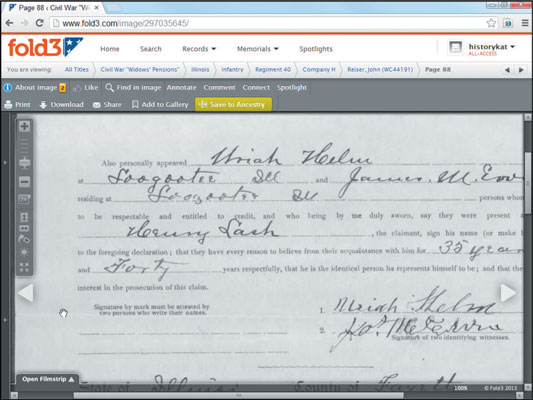 Page 88 ‹ Civil War "Wi
www.fold3.com/image/297035645/
fold3
Home Search Records Memorials Spotlights
historykat
ALL-ACCESS
You are viewing: All Titles Civil War "Widows' Pensions" Illinois Infantry Regiment 40 Company H Reiser, John (WC44191) Page 88
About image 2 Like Find in image Annotate Comment Connect Spotlight
Print Download Share Add to Gallery Save to Ancestry
Also personally appeared Uriah Helm
at Loogootee Ill and James. M.
residing at Loogootee Ill persons whom
to be respectable and entitled to credit, and who being by me duly sworn, say they were present a
Henry Lash, the claimant, sign his name (or make h
to the foregoing declaration; that they have every reason to believe from their acquaintance with him for 35 year
and Forty years respectfully, that he is the identical person he represents himself to be; and that the
interest in the prosecution of this claim.
Signature by mark must be attested by
two persons who write their names.
1. Uriah Helm
2.
Signature of two identifying witnesses.
State of Illinois County of Fayette
Open Filmstrip
100% © Fold3 2013